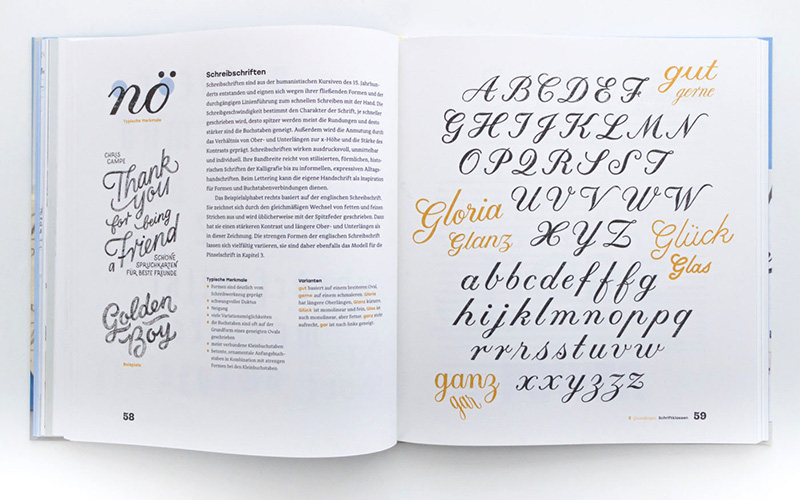 nö
Typische Merkmale
CHRIS
CAMPE
Thank
you
for being
a Friend
SCHÖNE
SPRUCHKARTEN
FÜR BESTE FREUNDE
Golden
Boy
Beispiele
Schreibschriften
Schreibschriften sind aus der humanistischen Kursiven des 15. Jahrhun-
derts entstanden und eignen sich wegen ihrer fließenden Formen und der
durchgängigen Linienführung zum schnellen Schreiben mit der Hand. Die
Schreibgeschwindigkeit bestimmt den Charakter der Schrift, je schneller
geschrieben wird, desto spitzer werden meist die Rundungen und desto
stärker sind die Buchstaben geneigt. Außerdem wird die Anmutung durch
das Verhältnis von Ober- und Unterlängen zur x-Höhe und die Stärke des
Kontrasts geprägt. Schreibschriften wirken ausdrucksvoll, unmittelbar
und individuell. Ihre Bandbreite reicht von stilisierten, förmlichen, histo-
rischen Schriften der Kalligrafie bis zu informellen, expressiven Alltags-
handschriften. Beim Lettering kann die eigene Handschrift als Inspiration
für Formen und Buchstabenverbindungen dienen.
Das Beispielalphabet rechts basiert auf der englischen Schreibschrift.
Sie zeichnet sich durch den gleichmäßigen Wechsel von fetten und feinen
Strichen aus und wird üblicherweise mit der Spitzfeder geschrieben. Dann
hat sie einen stärkeren Kontrast und längere Ober- und Unterlängen als
in dieser Zeichnung. Die strengen Formen der englischen Schreibschrift
lassen sich vielfältig variieren, sie sind daher ebenfalls das Modell für die
Pinselschrift in Kapitel 3.
Typische Merkmale
Formen sind deutlich vom
Schreibwerkzeug geprägt
schwungvoller Duktus
Neigung
viele Variationsmöglichkeiten
die Buchstaben sind oft auf der
Grundform eines geneigten Ovals
geschrieben
meist verbundene Kleinbuchstaben
betonte, ornamentale Anfangsbuch-
staben in Kombination mit strengen
Formen bei den Kleinbuchstaben
Varianten
gut basiert auf einem breiteren Oval,
gerne auf einem schmaleren. Gloria
hat längere Oberlängen, Glanz kürzere,
Glück ist monolinear und fein, Glas ist
auch monolinear, aber fetter. ganz steht
aufrecht, gar ist nach links geneigt.
58
A B C D E F gut
gerne
G H I J K L M N
O P Q R S T
Gloria U U V V W W
Glanz X Y Z Glück
Glas
a b b c d e f f f g
h i j k l m n o p p q
r r r s s t u v w
ganz x x y z z z
gar
Schriftklassen 59